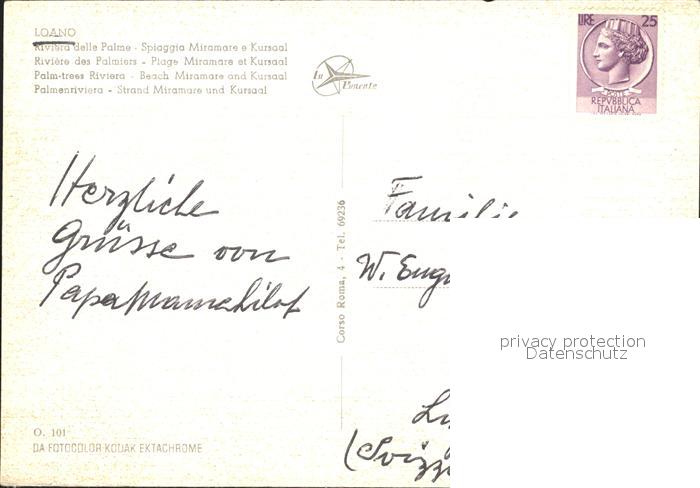 LOANO
Riviera delle Palme - Spiaggia Miramare e Kursaal
Rivière des Palmiers - Plage Miramare et Kursaal
Palm-trees Riviera - Beach Miramare and Kursaal
Palmenriviera - Strand Miramare und Kursaal
In Ponente
LIRE 25
POSTE
REPVBBLICA
ITALIANA
Herzliche
Grüsse von
Papa Mama
Corso Roma, 4 - Tel. 69236
Familie
W. Eug
privacy protection
Datenschutz
Lu
(Svizz
O. 101
DA FOTOCOLOR KODAK EKTACHROME